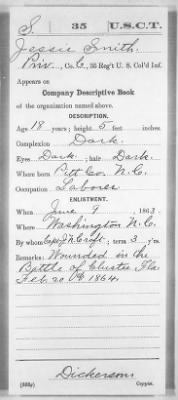 S. 35 U.S.C.T.
Jessie Smith
Priv., Co. C, 35 Reg't U. S. Col'd Inf.
Appears on
Company Descriptive Book
of the organization named above.
DESCRIPTION.
Age 18 years; height 5 feet inches.
Complexion Dark.
Eyes Dark.; hair Dark.
Where born Pitt Co. N.C.
Occupation Laborer
ENLISTMENT.
When June 9, 1863.
Where Washington N.C.
By whom Capt J. N. Croft; term 3 y'rs.
Remarks: Wounded in the
Battle of Olustee Fla.
Feb. 20th 1864.
Dickerson
Copyist.